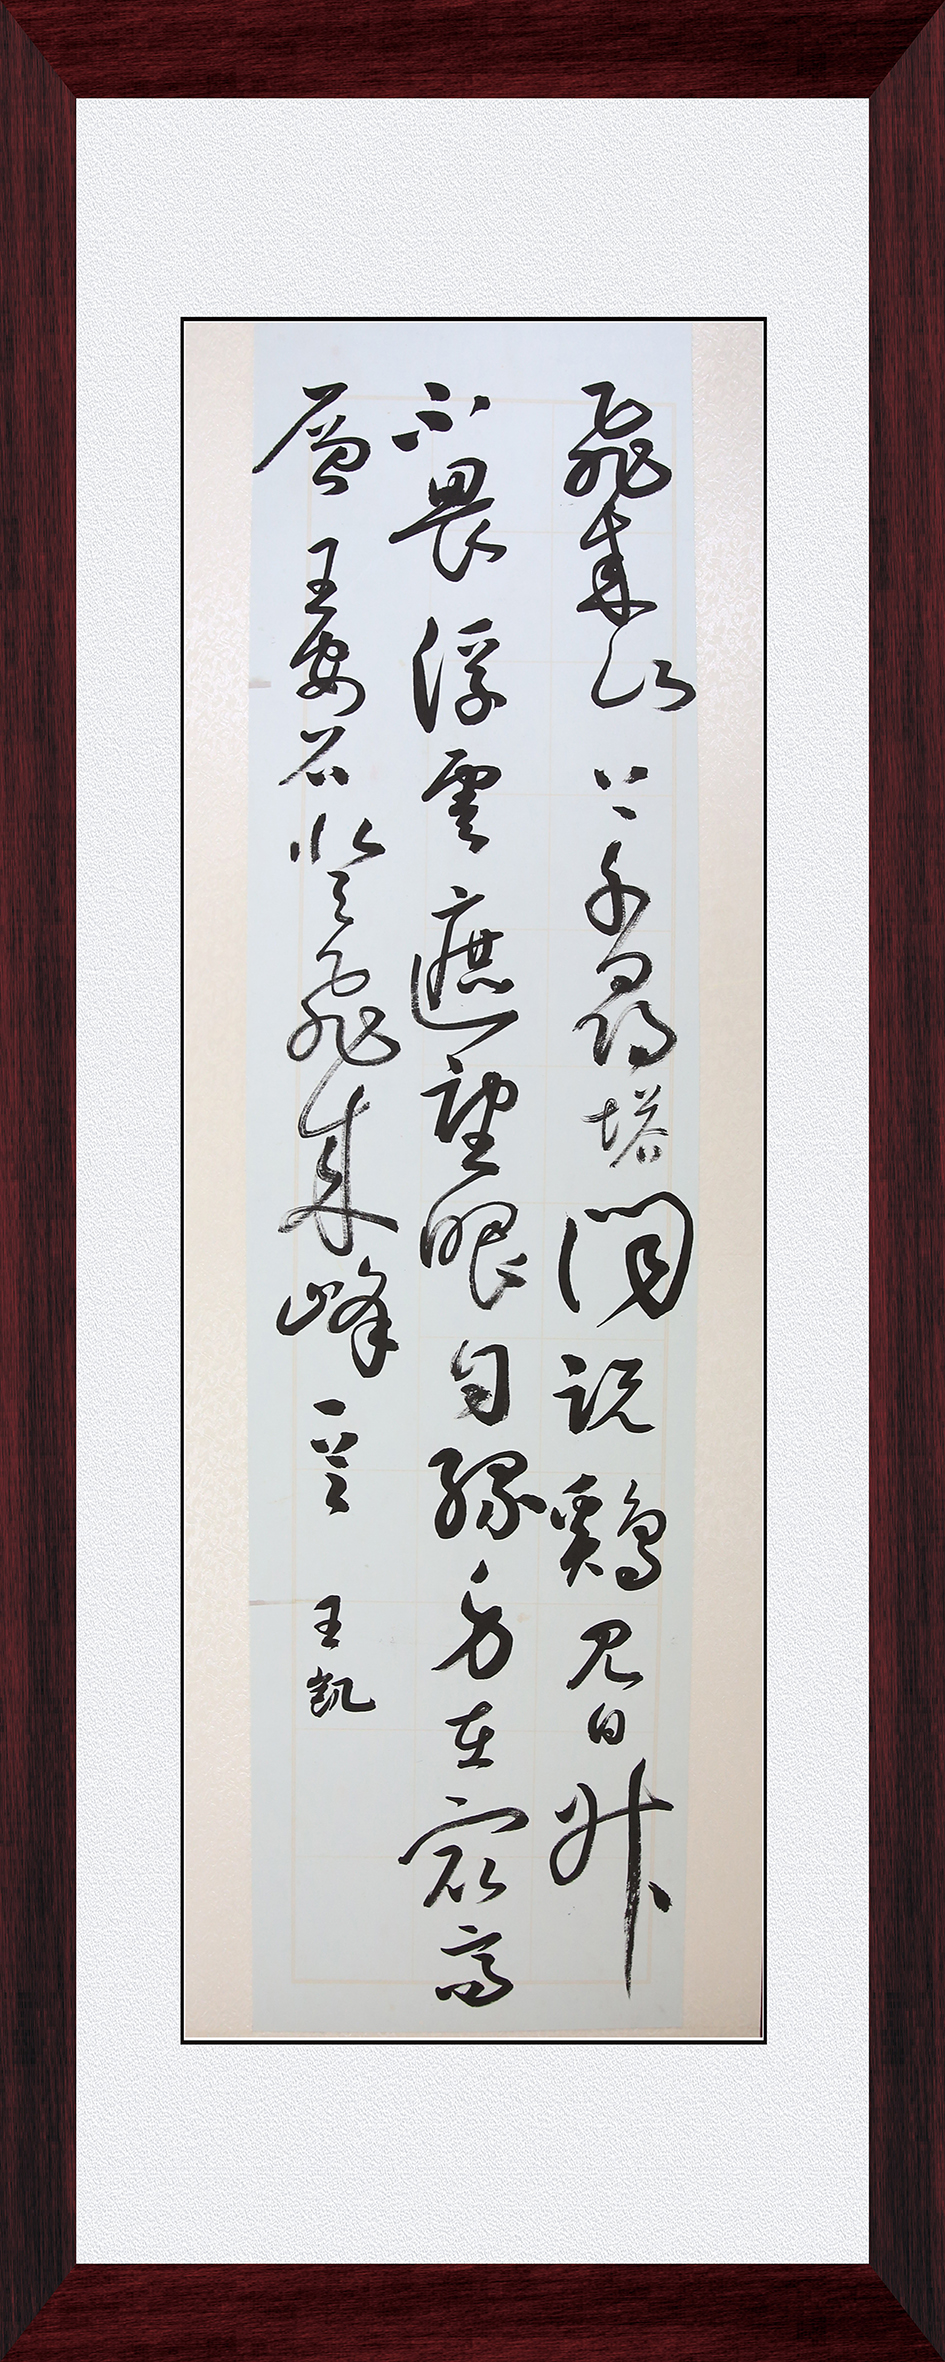 飛來山上千尋塔聞說鷄見日升
不畏浮雲遮望眼自緣身在最高
層王安石登飛來峰一首王凱